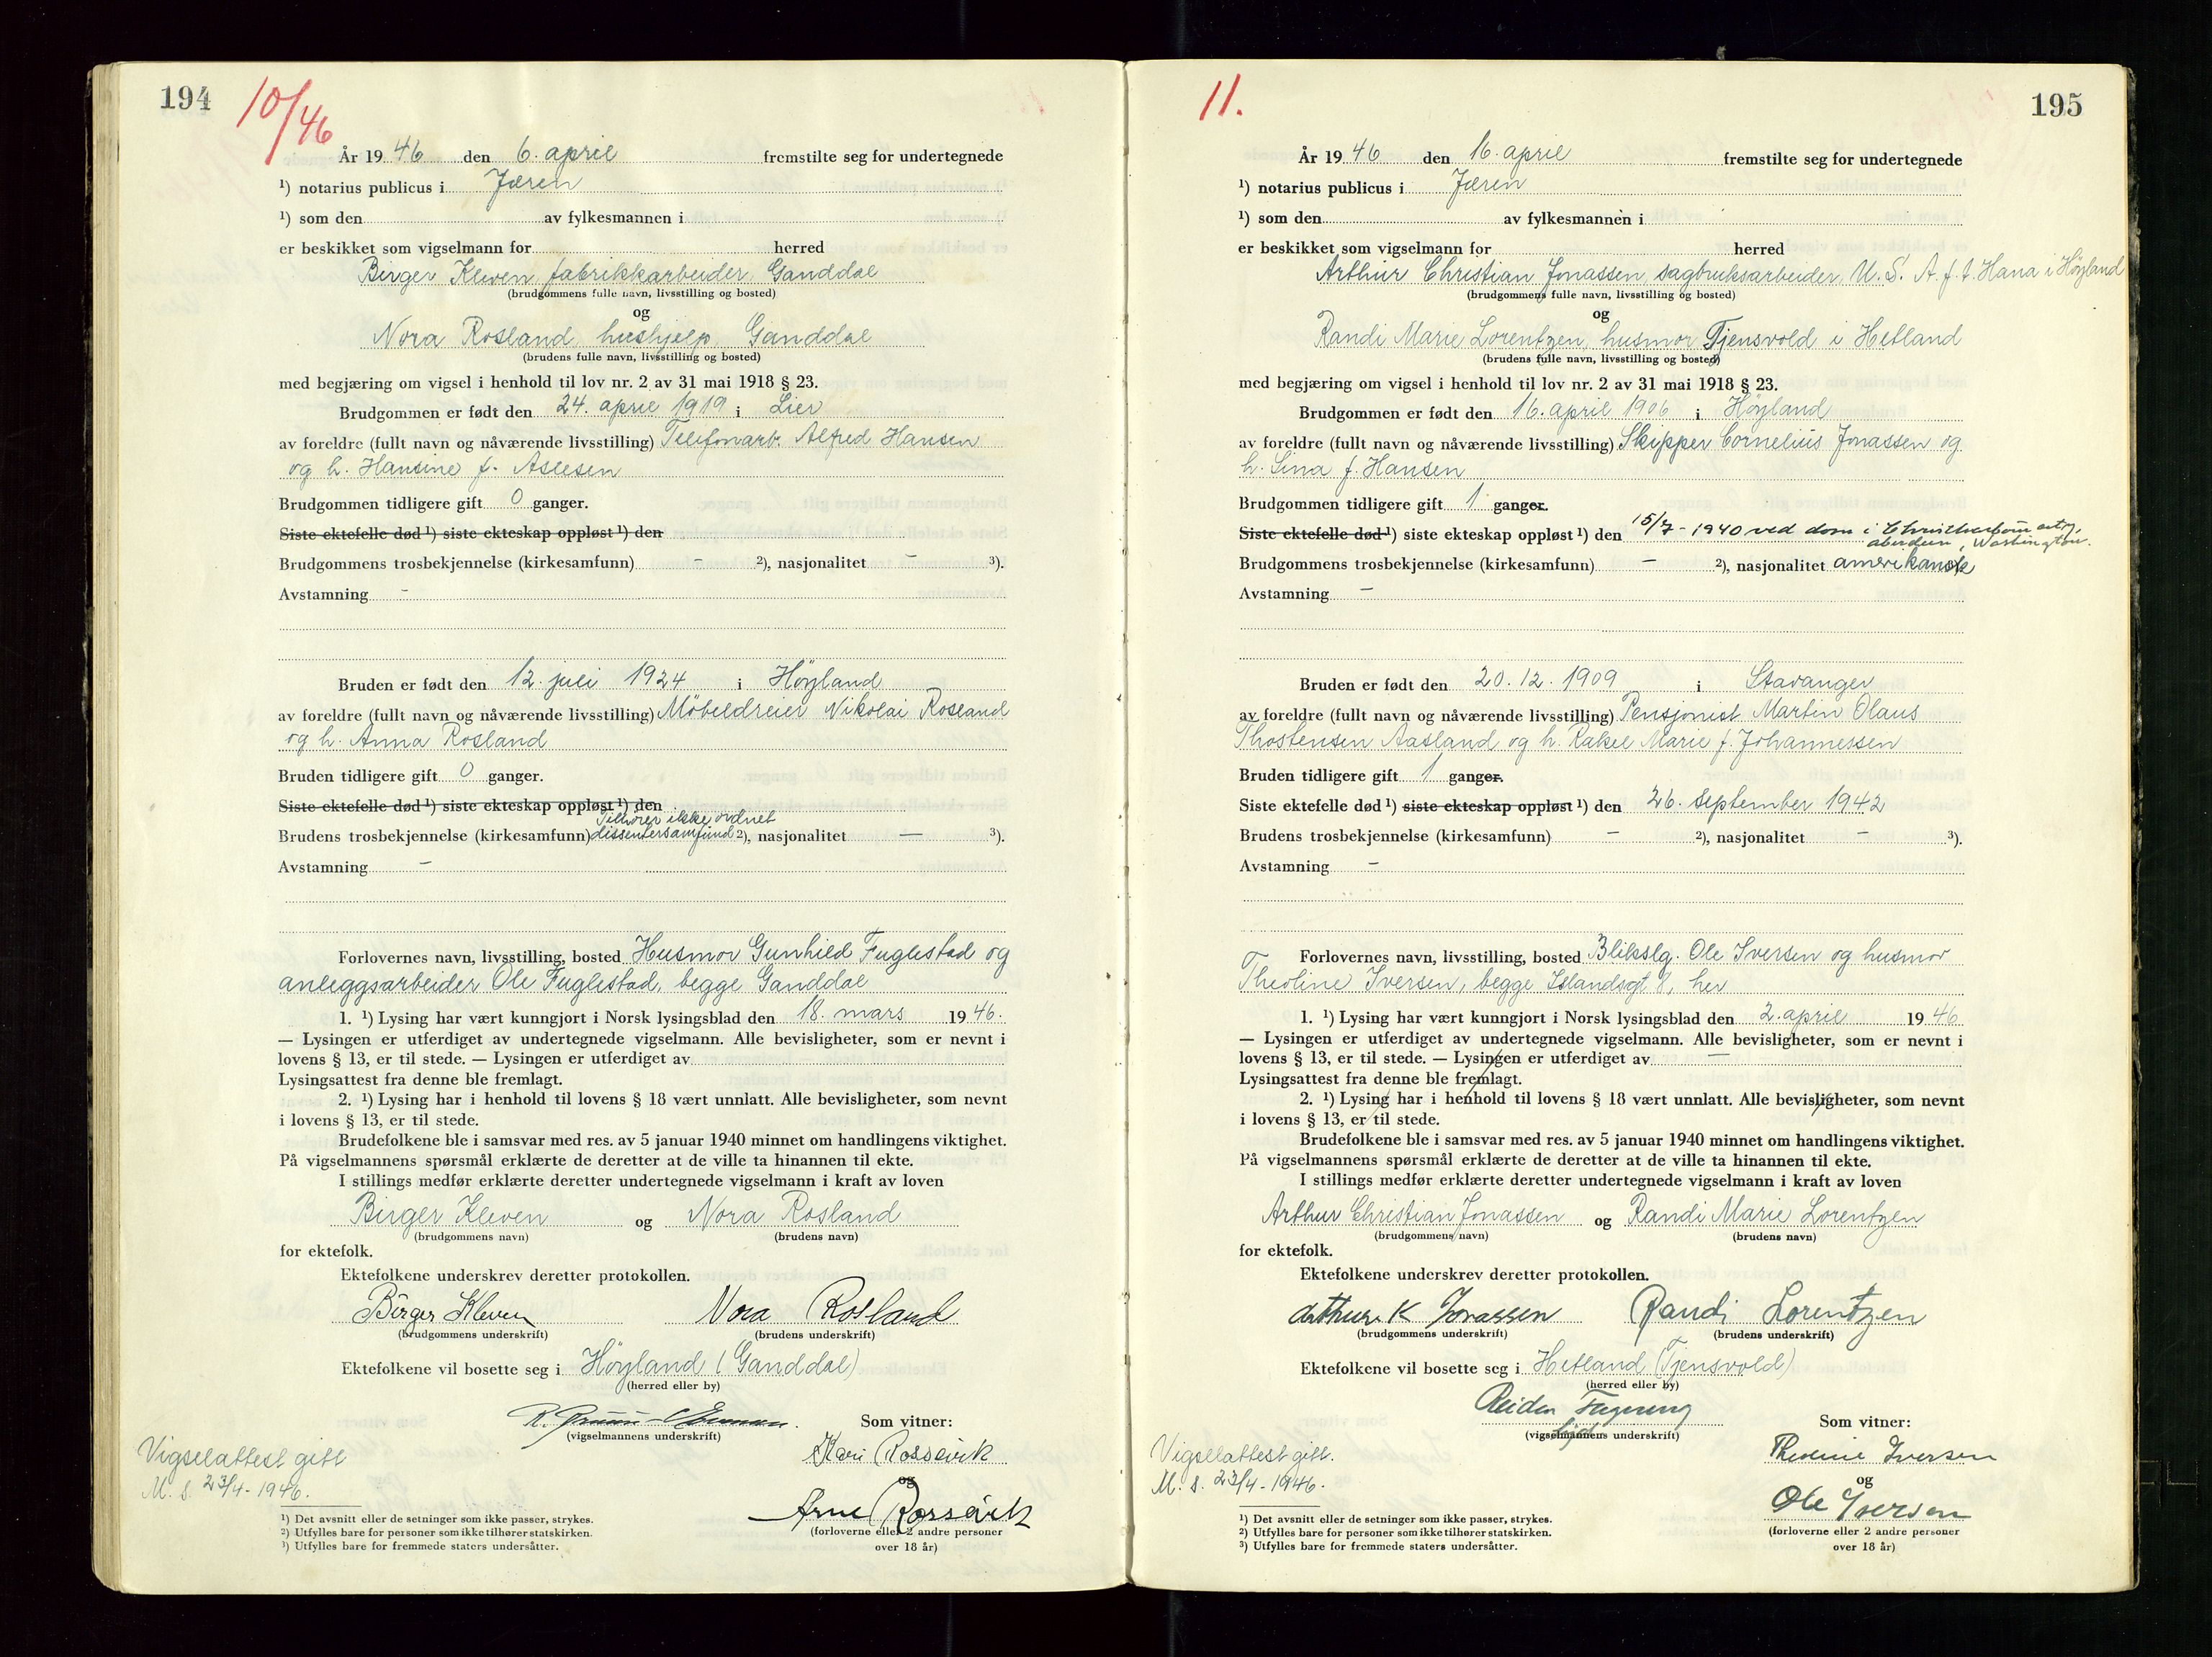 194
10/46
År 19 46 den 6. april fremstilte seg for undertegnede
¹) notarius publicus i Jæren
¹) som den av fylkesmannen i
er beskikket som vigselmann for herred
Birger Kleven, fabrikkarbeider, Ganddal
(brudgommens fulle navn, livsstilling og bosted)
og
Nora Rosland, hushjelp, Ganddal
(brudens fulle navn, livsstilling og bosted)
med begjæring om vigsel i henhold til lov nr. 2 av 31 mai 1918 § 23.
Brudgommen er født den 24. april 1919 i Lier
av foreldre (fullt navn og nåværende livsstilling) Telefonarb. Alfred Hansen
og h. Hansine f. Aslesen
Brudgommen tidligere gift 0 ganger.
Siste ektefelle død ¹) siste ekteskap oppløst ¹) den
Brudgommens trosbekjennelse (kirkesamfunn) - ²), nasjonalitet - ³).
Avstamning -
Bruden er født den 12. juli 1924 i Høyland
av foreldre (fullt navn og nåværende livsstilling) Møbeldreier Nikolai Rosland
og h. Anna Rosland
Bruden tidligere gift 0 ganger.
Siste ektefelle død ¹) siste ekteskap oppløst ¹) den
Tilhører ikke ordnet
Brudens trosbekjennelse (kirkesamfunn) dissentersamfund ²), nasjonalitet — ³).
Avstamning -
Forlovernes navn, livsstilling, bosted Husmor Gunhild Fuglestad og
anleggsarbeider Ole Fuglestad, begge Ganddal
1. ¹) Lysing har vært kunngjort i Norsk lysingsblad den 18. mars 19 46.
— Lysingen er utferdiget av undertegnede vigselmann. Alle bevisligheter, som er nevnt i
lovens § 13, er til stede. — Lysingen er utferdiget av
Lysingsattest fra denne ble fremlagt.
2. ¹) Lysing har i henhold til lovens § 18 vært unnlatt. Alle bevisligheter, som nevnt
i lovens § 13, er til stede.
Brudefolkene ble i samsvar med res. av 5 januar 1940 minnet om handlingens viktighet.
På vigselmannens spørsmål erklærte de deretter at de ville ta hinannen til ekte.
I stillings medfør erklærte deretter undertegnede vigselmann i kraft av loven
Birger Kleven og Nora Rosland
(brudgommens navn) (brudens navn)
for ektefolk.
Ektefolkene underskrev deretter protokollen.
Birger Kleven Nora Rosland
(brudgommens underskrift) (brudens underskrift)
Ektefolkene vil bosette seg i Høyland (Ganddal)
(herred eller by)
(vigselmannens underskrift)
Som vitner:
Kari Rossavik
og
Arne Rossavik
(forloverne eller 2 andre personer
over 18 år)
Vigselattest gitt
M. S. 23/4-1946.
¹) Det avsnitt eller de setninger som ikke passer, strykes.
²) Utfylles bare for personer som ikke tilhører statskirken.
³) Utfylles bare for fremmede staters undersåtter.
195
11.
År 19 46 den 16. april fremstilte seg for undertegnede
¹) notarius publicus i Jæren
¹) som den av fylkesmannen i
er beskikket som vigselmann for herred
Arthur Christian Jonassen, sagbruksarbeider, U. S. A. f. t. Hana i Høyland
(brudgommens fulle navn, livsstilling og bosted)
og
Randi Marie Lorentzen, husmor Tjensvold i Hetland
(brudens fulle navn, livsstilling og bosted)
med begjæring om vigsel i henhold til lov nr. 2 av 31 mai 1918 § 23.
Brudgommen er født den 16. april 1906 i Høyland
av foreldre (fullt navn og nåværende livsstilling) Skipper Cornelius Jonassen og
h. Sina f. Hansen
Brudgommen tidligere gift 1 ganger.
Siste ektefelle død ¹) siste ekteskap oppløst ¹) den 15/7 - 1940 ved dom i
aberdeen, Washington.
Brudgommens trosbekjennelse (kirkesamfunn) - ²), nasjonalitet amerikansk
Avstamning -
Bruden er født den 20. 12. 1909 i Stavanger
av foreldre (fullt navn og nåværende livsstilling) Pensjonist Martin Olaus
Thostensen Aasland og h. Rakel Marie f. Johannessen
Bruden tidligere gift 1 ganger.
Siste ektefelle død ¹) siste ekteskap oppløst ¹) den 26. september 1942
Brudens trosbekjennelse (kirkesamfunn) - ²), nasjonalitet - ³).
Avstamning -
Forlovernes navn, livsstilling, bosted Blikslg. Ole Iversen og husmor
Theoline Iversen, begge Islandsgt 8, her
1. ¹) Lysing har vært kunngjort i Norsk lysingsblad den 2. april 19 46
— Lysingen er utferdiget av undertegnede vigselmann. Alle bevisligheter, som er nevnt i
lovens § 13, er til stede. — Lysingen er utferdiget av —
Lysingsattest fra denne ble fremlagt.
2. ¹) Lysing har i henhold til lovens § 18 vært unnlatt. Alle bevisligheter, som nevnt
i lovens § 13, er til stede.
Brudefolkene ble i samsvar med res. av 5 januar 1940 minnet om handlingens viktighet.
På vigselmannens spørsmål erklærte de deretter at de ville ta hinannen til ekte.
I stillings medfør erklærte deretter undertegnede vigselmann i kraft av loven
Arthur Christian Jonassen og Randi Marie Lorentzen
(brudgommens navn) (brudens navn)
for ektefolk.
Ektefolkene underskrev deretter protokollen.
Arthur K Jonassen Randi Lorentzen
(brudgommens underskrift) (brudens underskrift)
Ektefolkene vil bosette seg i Hetland (Tjensvold)
(herred eller by)
Reidar
(vigselmannens underskrift)
Som vitner:
Theoline Iversen
og
Ole Iversen
(forloverne eller 2 andre personer
over 18 år)
Vigsellattest gitt.
M. S. 23/4 - 1946.
¹) Det avsnitt eller de setninger som ikke passer, strykes.
²) Utfylles bare for personer som ikke tilhører statskirken.
³) Utfylles bare for fremmede staters undersåtter.